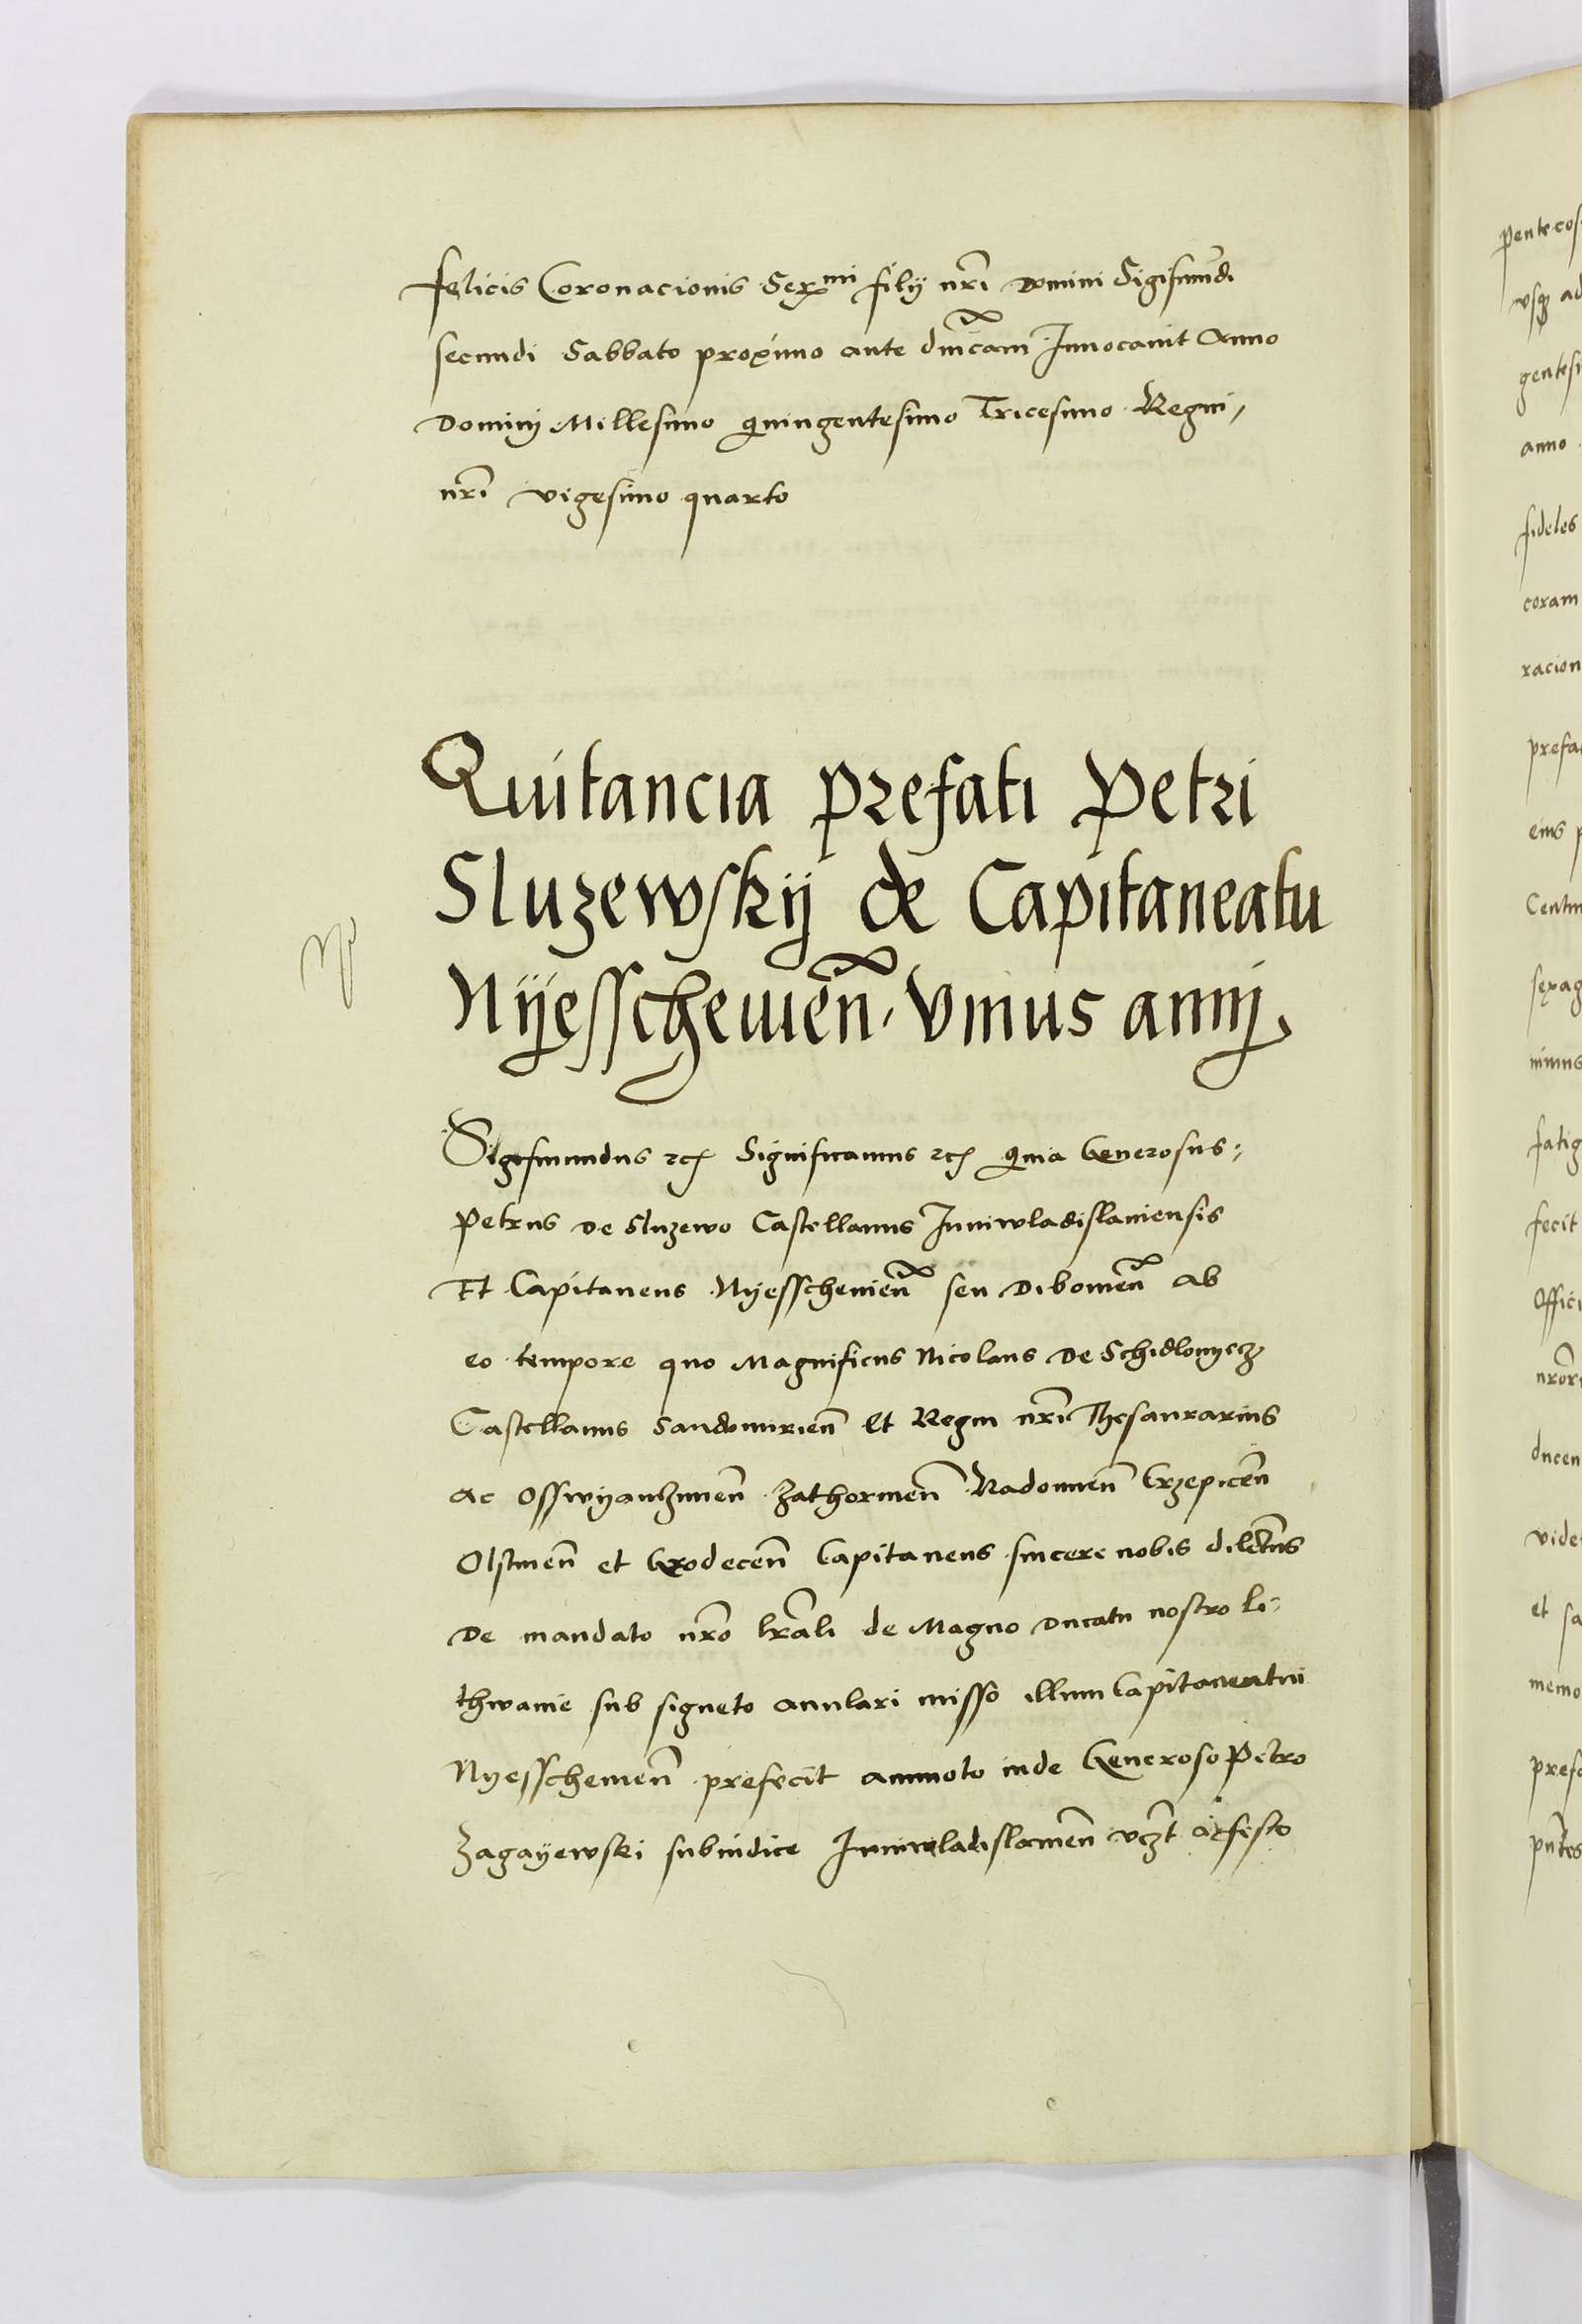 felicis Coronacionis Serᵐⁱ filij nr̃i Domini Sigismũdi
secundi Sabbato proximo ante dnĩcam Inuocauit Anno
Dominj Millesimo quingentesimo Tricesimo Regni,
nr̃i vigesimo quarto
Quitancia prefati Petri
Sluzewskij de Capitaneatu
Nÿesscheuieñ. Vnius annj,
Sigismundus etc Significamus etc quia Generosus
Petrus De Sluzewo Castellanus Iuniwladislauiensis
Et Capitaneus Nÿesscheuieñ seu Dibouieñ Ab
eo tempore quo Magnificus Nicolaus De Schidlouyecz
Castellanus Sandomirieñ Et Regni nr̃i Thesaurarius
Ac Osswÿanczimeñ Zathorieñ Radomieñ Crzepiceñ
Olstineñ et Grodeceñ Capitaneus sincere nobis dilectus
De mandato nr̃o lrãli de Magno Ducatu nostro Li-
thwanie sub signeto anulari misso illum Capitaneatui
Nyesscheuieñ prefecit ammoto inde Generoso Petro
Zagaÿewski subiudice Iuniwladislauieñ vcz̃t a festo
pentecos
vsq̃ ad
gentesi
anno
fideles
coram
racion
prefa
eius p
Centu
sexag
minus
fatig
fecit
Offici
nror̃
ducen
vide
et sa
memo
prefa
pñtes